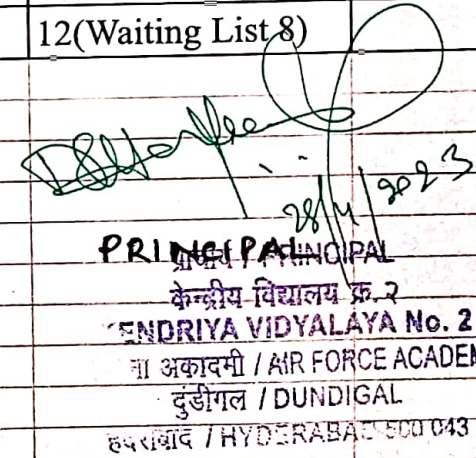 12(Waiting List 8)
28/4/2023
PRINCIPAL
प्राचार्य / PRINCIPAL
केन्द्रीय विद्यालय क्र. २
KENDRIYA VIDYALAYA No. 2
ना अकादमी / AIR FORCE ACADEM
दुंडीगल / DUNDIGAL
हैदराबाद / HYDERABAD-500 043